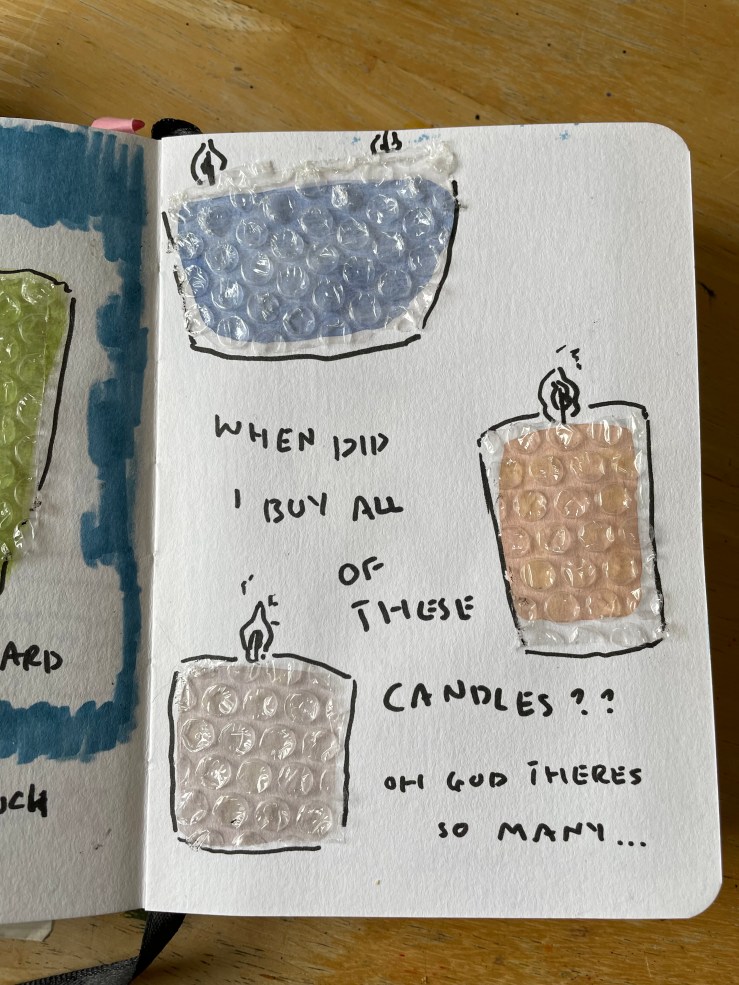 ARD
UCK
WHEN DID
I BUY ALL
OF
THESE
CANDLES??
OH GOD THERES
SO MANY...